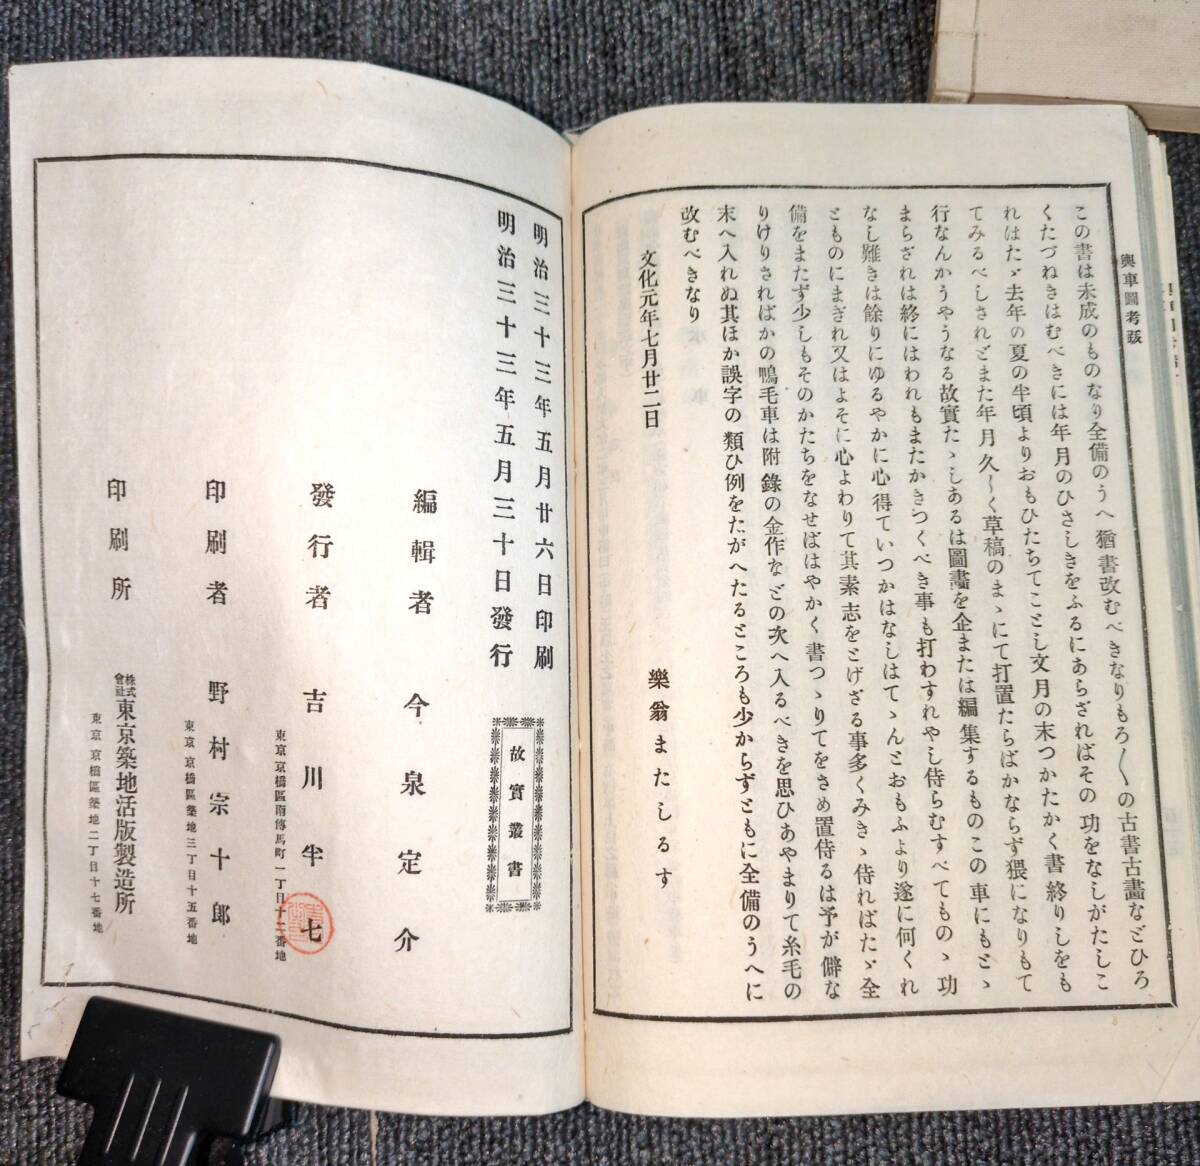 輿車圖考跋
この書は未成のものなり全備のうへ猶書改むべきなりもろ〱の古書古畫などひろ
くたづねきはむべきには年月のひさしきをふるにあらざればその功をなしがたしこ
れはたゞ去年の夏の半頃よりおもひたちてことし文月の末つかたかく書終りしをも
てみるべしされどまた年月久〱く草稿のまゝにて打置たらばかならず猥になりもて
行なんかうやうなる故實たゝしあるは圖畵を企または編集するものこの車にもとゝ
まらざれは終にはわれもまたかきつくべき事も打わすれやし侍らむすべてものゝ功
なし難きは餘りにゆるやかに心得ていつかはなしはてゝんとおもふより遂に何くれ
とものにまぎれ又はよそに心よわりて其素志をとげざる事多くみきゝ侍ればたゞ全
備をまたず少しもそのかたちをなせばはやかく書つゝりてをさめ置侍るは予が僻な
りけりさればかの鴨毛車は附錄の金作などの次へ入るべきを思ひあやまりて糸毛の
末へ入れぬ其ほか誤字の類ひ例をたがへたるところも少からずともに全備のうへに
改むべきなり
文化元年七月廿二日
樂翁またしるす
明治三十三年五月廿六日印刷
明治三十三年五月三十日發行
故實叢書
編輯者 今泉定介
發行者 吉川半七
東京京橋區南傳馬町一丁目十二番地
印刷者 野村宗十郎
東京京橋區築地三丁目十五番地
印刷所 株式會社東京築地活版製造所
東京京橋區築地二丁目十七番地